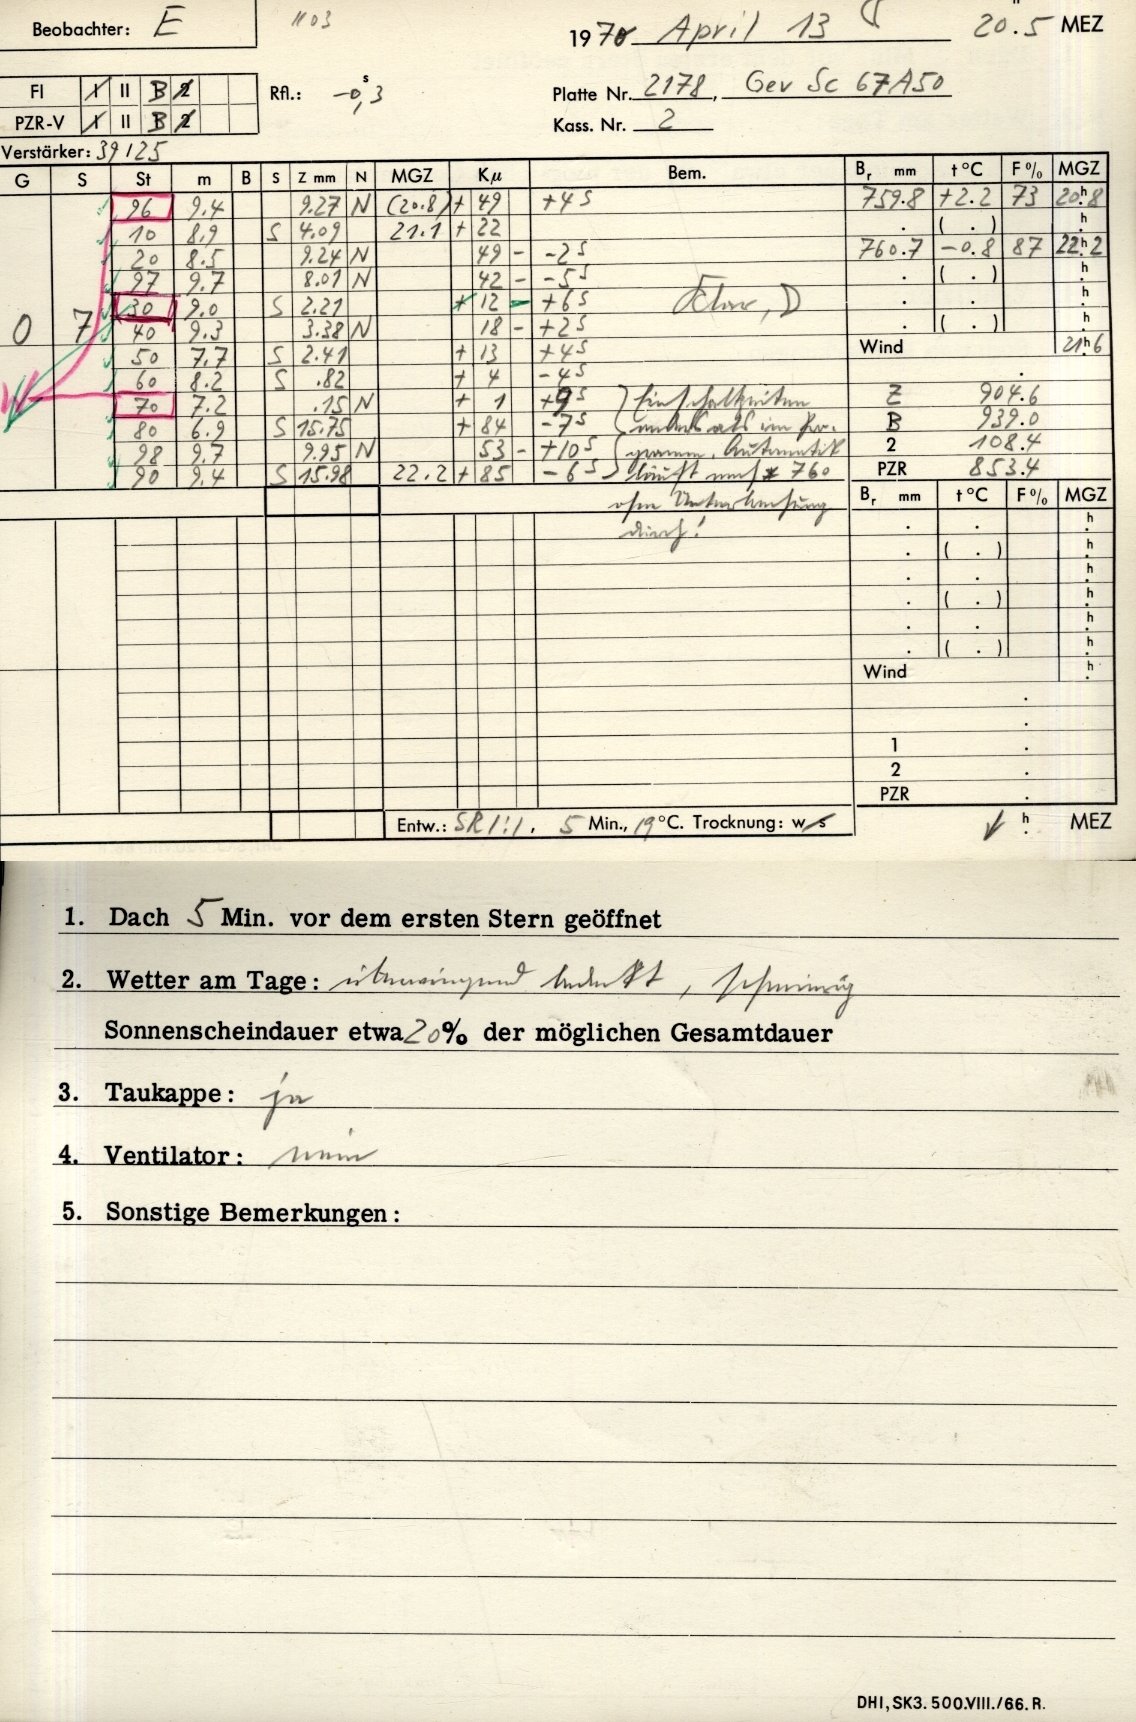 Beobachter: E
1103
1970 April 13
20.5 MEZ
FI I II B 2
PZR-V I II B 2
Rfl.: -0,3 s
Platte Nr. 2178, Gev Sc 67A50
Kass. Nr. 2
Verstärker: 39125
G S St m B S Z mm N MGZ Kμ Bem. Br mm t °C F % MGZ
0 7
96 9.4 9.27 N (20.8) + 49 +4 s 759.8 +2.2 73 20h.8
10 8.9 S 4.09 21.1 + 22 ( . ) h
20 8.5 9.24 N 49 - -2 s 760.7 -0.8 87 22h.2
97 9.7 8.01 N 42 - -5 s ( . ) h
30 9.0 S 2.21 + 12 - +6 s klar, D h
40 9.3 3.38 N 18 - +2 s ( . ) h
50 7.7 S 2.41 + 13 +4 s Wind 21h.6
60 8.2 S .82 + 4 -4 s
70 7.2 .15 N + 1 +9 s Einschaltzeiten Z 904.6
80 6.9 S 15.75 + 84 -7 s anders als im Pro- B 939.0
98 9.7 9.95 N 53 - +10 s gramm. Automatik 2 108.4
90 9.4 S 15.98 22.2 + 85 -6 s läuft nach 760 PZR 853.4
ohne Unterbrechung
durch!
Br mm t °C F % MGZ
. . h
. ( . ) h
. . h
. ( . ) h
. . h
. ( . ) h
Wind h
1 .
2 .
PZR .
Entw.: SR 1:1, 5 Min., 19 °C. Trocknung: w s
h MEZ
1. Dach 5 Min. vor dem ersten Stern geöffnet
2. Wetter am Tage: überwiegend bedeckt,
Sonnenscheindauer etwa 20% der möglichen Gesamtdauer
3. Taukappe: ja
4. Ventilator: nein
5. Sonstige Bemerkungen:
DHI, SK3. 500.VIII./66. R.